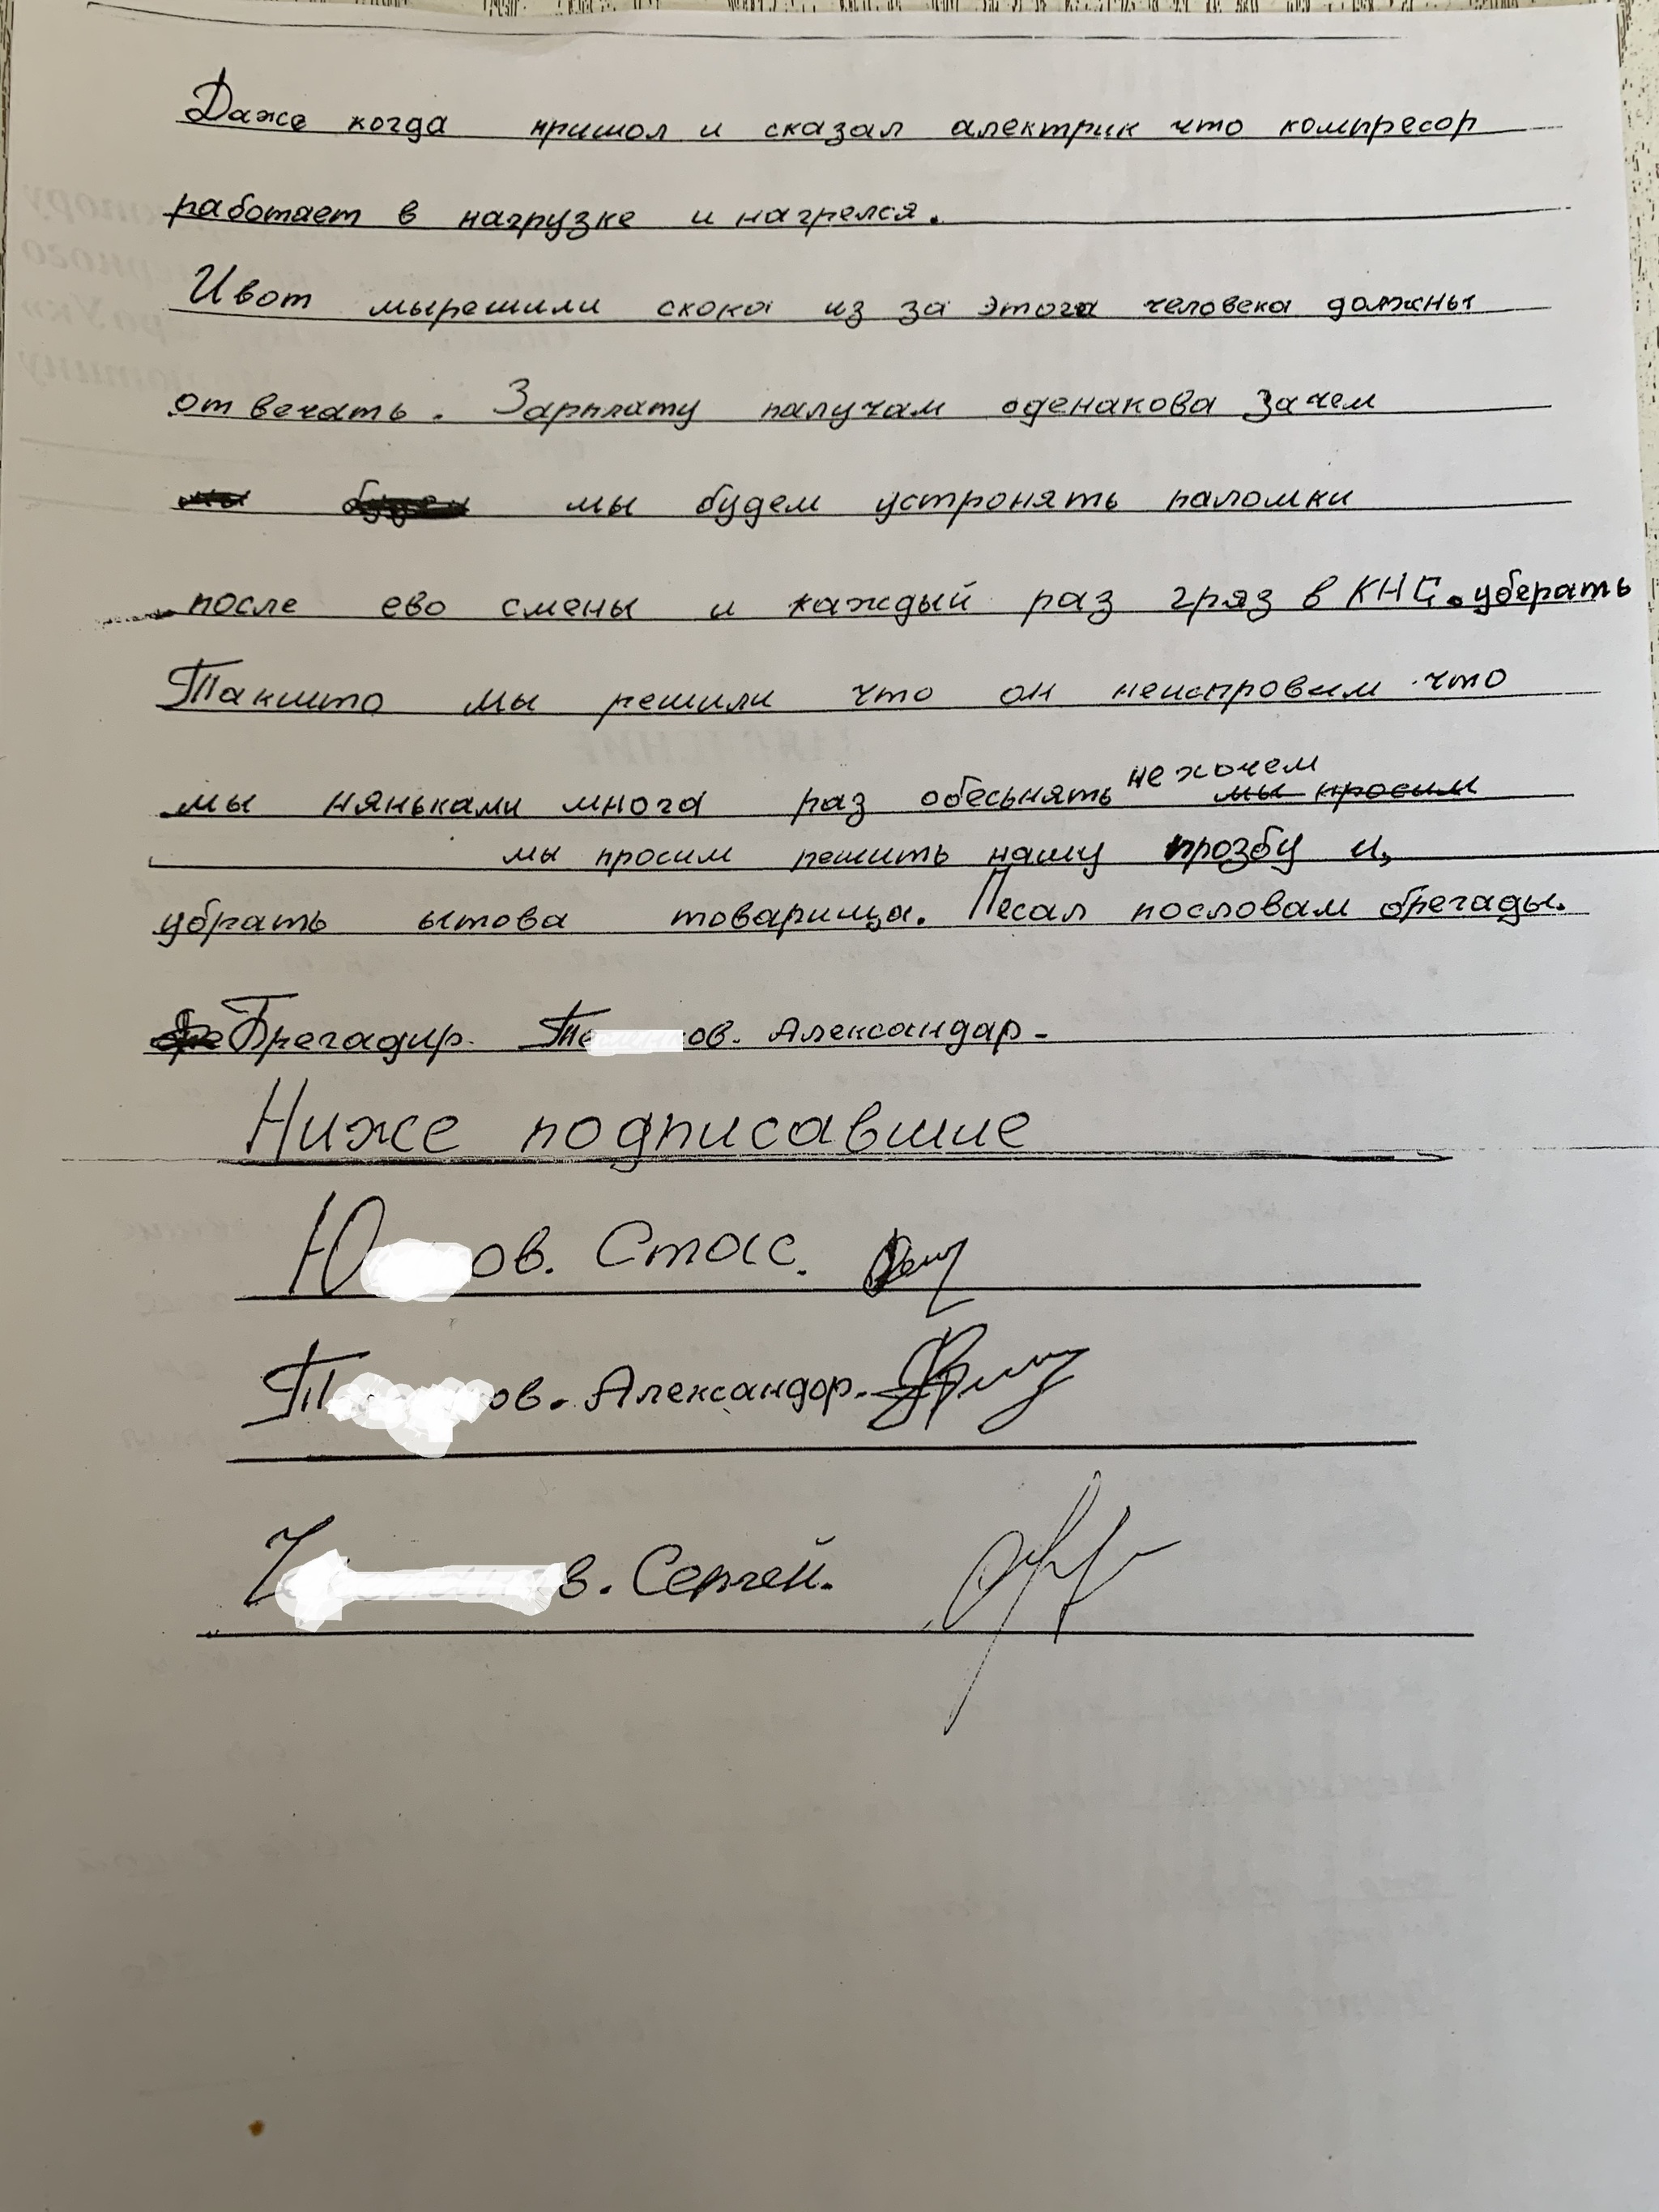 Даже когда пришол и сказал алектрик что компресор
работает в нагрузке и нагрелся.
Ивот мырешили скока из за этога человека должны
отвечать. Зарплату палучам оденакова зачем
мы будем устронять паломки
после ево смены и каждый раз гряз в КНС. уберать
Такшто мы решили что он неисправим что
мы няньками много раз обесьнять не хочем мы просим
мы просим решить нашу прозбу и,
убрать ытова товарища. Песал пословам брегады.
Брегадир. Те ов. Александар.
Ниже подписавшие
Ю ов. Стас.
Т ов. Александр.
Ч в. Сергей.